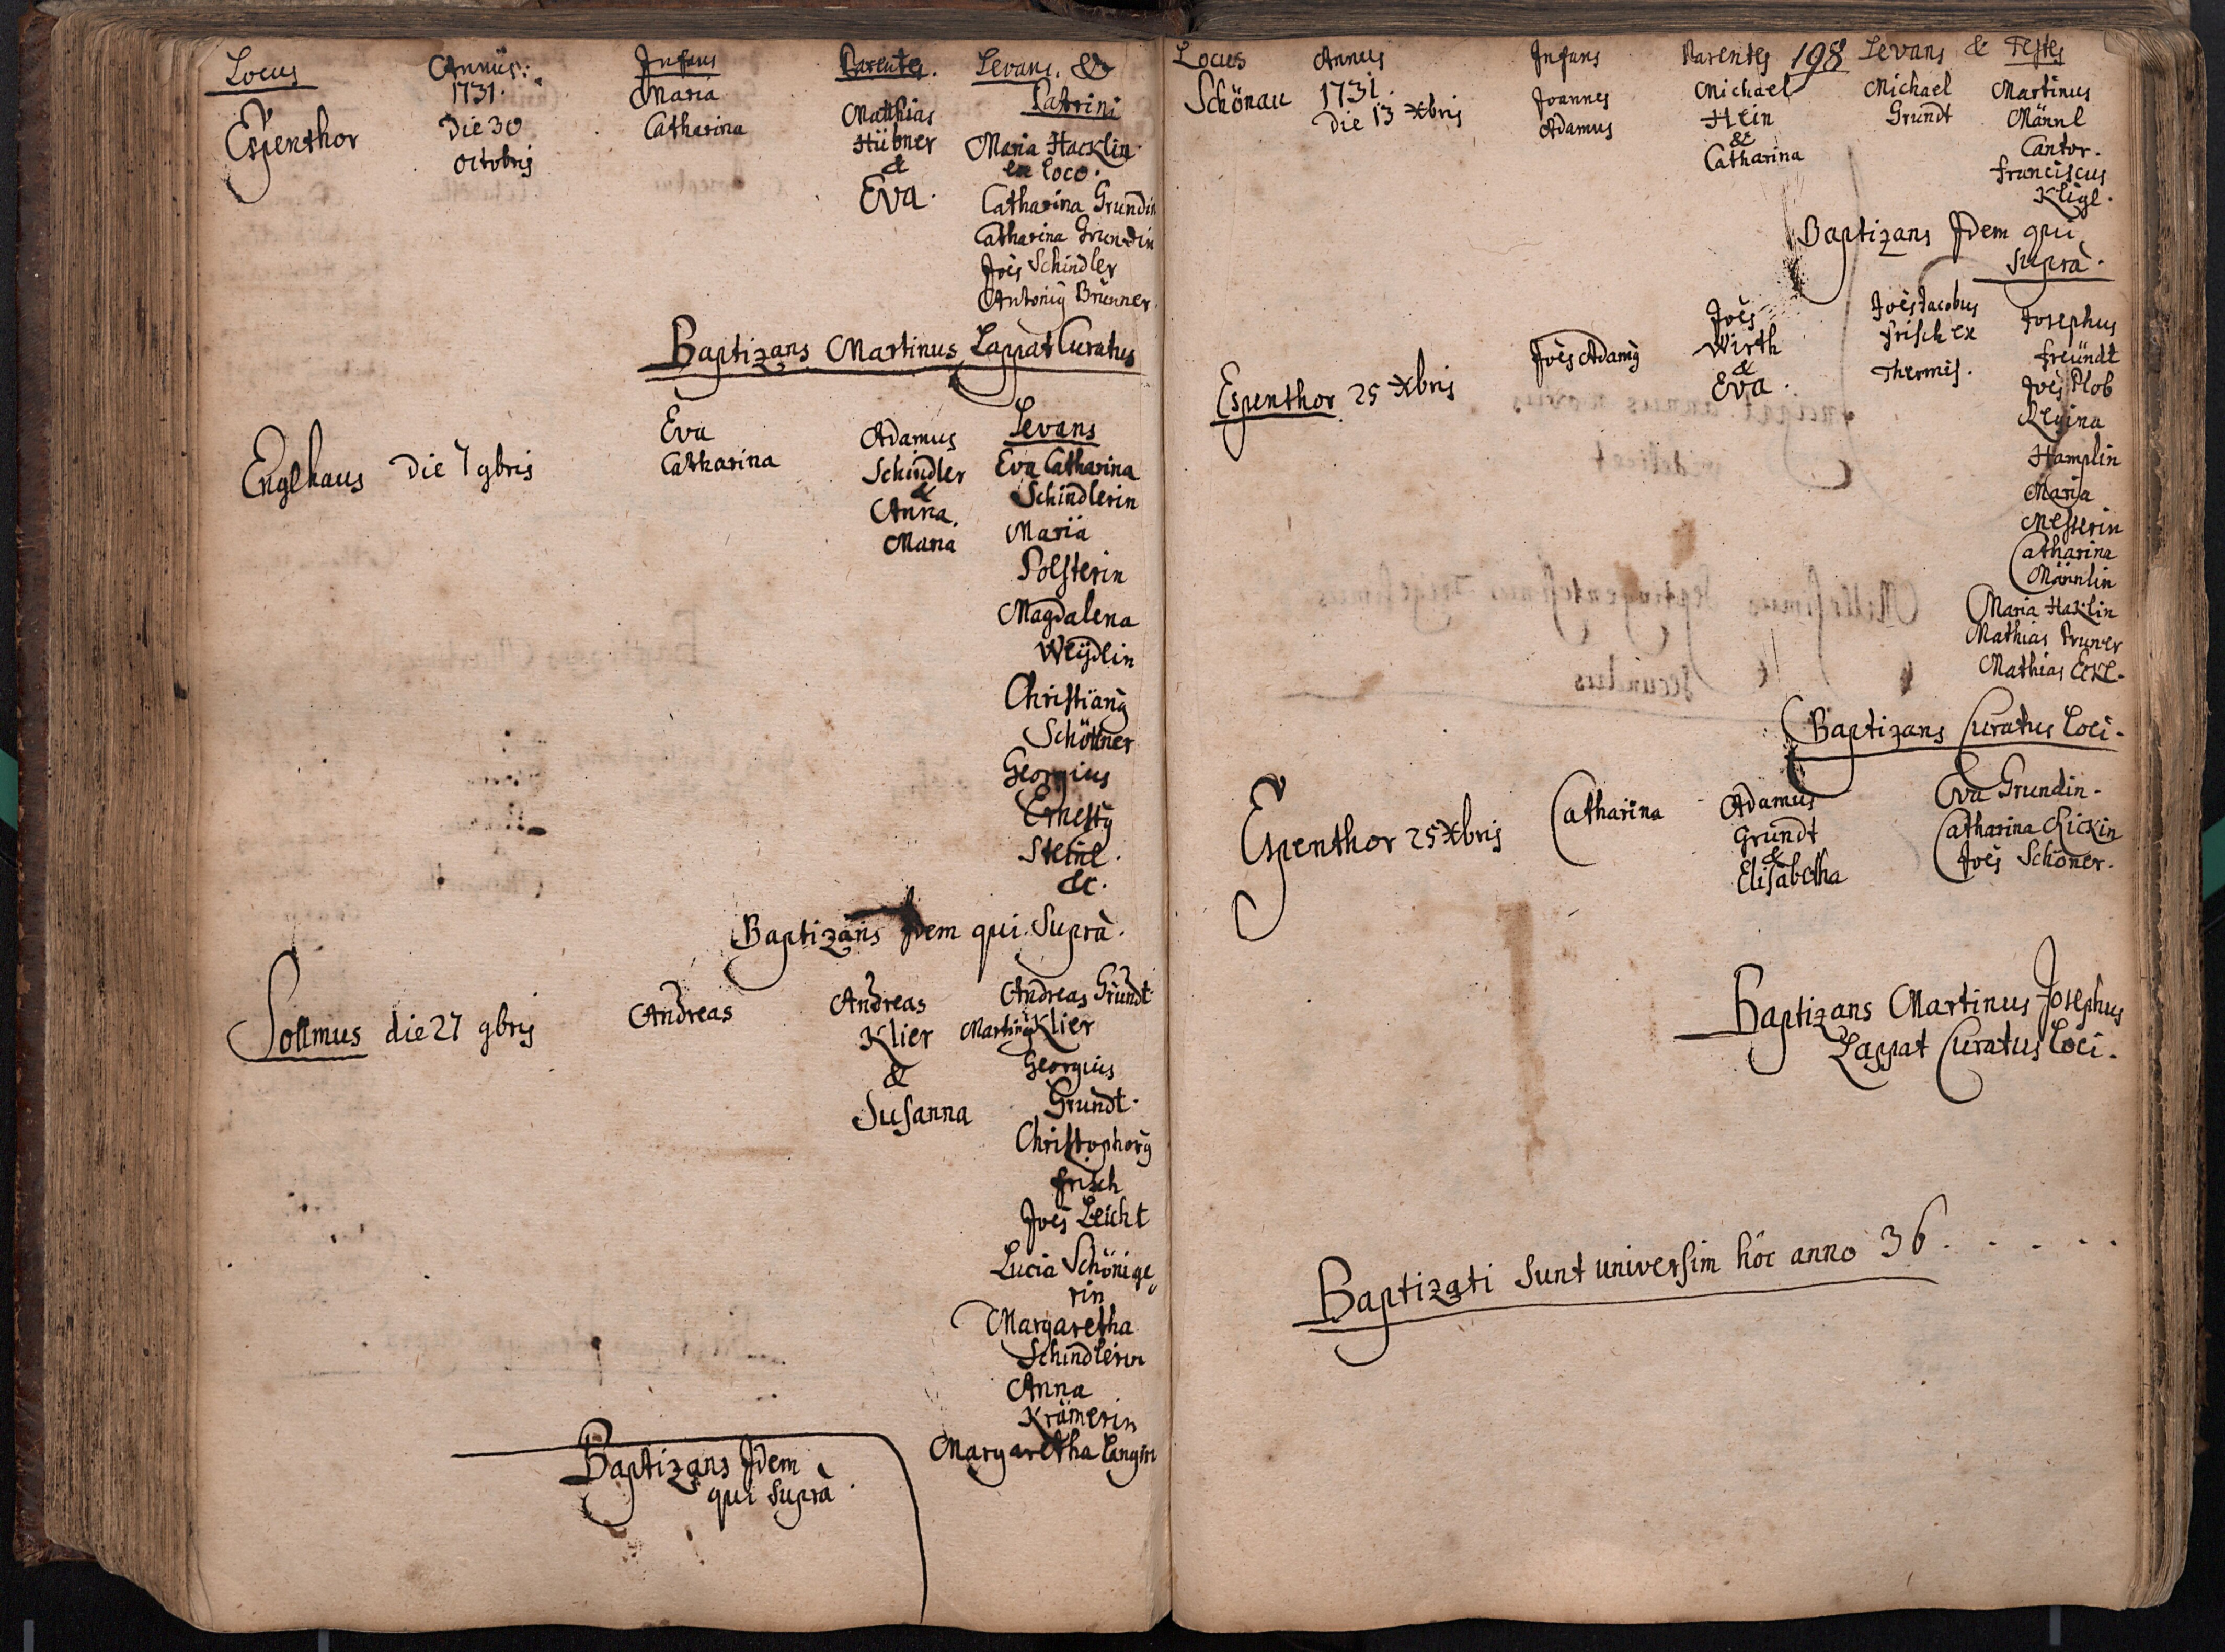 Locus Annus: Infans Parentes. Levans. &
1731. Maria Patrini
Espenthor Die 30 Catharina Matthias
Octobris Hübner Maria Hacklin
& ex loco.
Eva. Catharina Grundin
Catharina Grundin
Joēs Schindler
Antonius Brunner.
Baptizans Martinus Lappat Curatus
Eva Levans
Englhaus Die 7 9bris Catharina Adamus
Schindler Eva Catharina
& Schindlerin
Anna Maria
Maria Polsterin
Magdalena
Weÿdlin
Christianus
Schöttner
Georgius
Ernestus
Steinl.
&c.
Baptizans Idem qui Supra.
Sollmus die 27 9bris Andreas Andreas Andreas Grundt
Klier Martinus Klier
& Georgius
Susanna Grundt.
Christophorus
Frisch
Joēs Leicht
Lucia Schönige,,
rin
Margaretha
Schindlerin
Anna
Krämerin
Margaretha Langin
Baptizans Idem
qui Supra.
Locus Annus Infans Parentes 198 Levans & Testes
Schönau 1731. Joannes Michael Michael Martinus
Die 13 Xbris Adamus Hein Grundt Männl
& Cantor.
Catharina Franciscus
Kligl.
Baptizans Idem qui
Supra.
Joēs Joēs Jacobus Josephus
Espenthor 25 Xbris Joēs Adamus Wirth Frisch ex Freündt
& Thermis. Joēs Plob
Eva. Regina
Hamplin
Maria
Messerin
Catharina
Männlin
Maria Haklin
Mathias Pruner
Mathias Eckl.
Baptizans Curatus Loci.
Espenthor 25 Xbris Catharina Adamus Eva Grundin.
Grundt Catharina Rickin
& Joēs Schöner.
Elisabetha
Baptizans Martinus Josephus
Lappat Curatus Loci.
Baptizati Sunt universim hoc anno 36.....